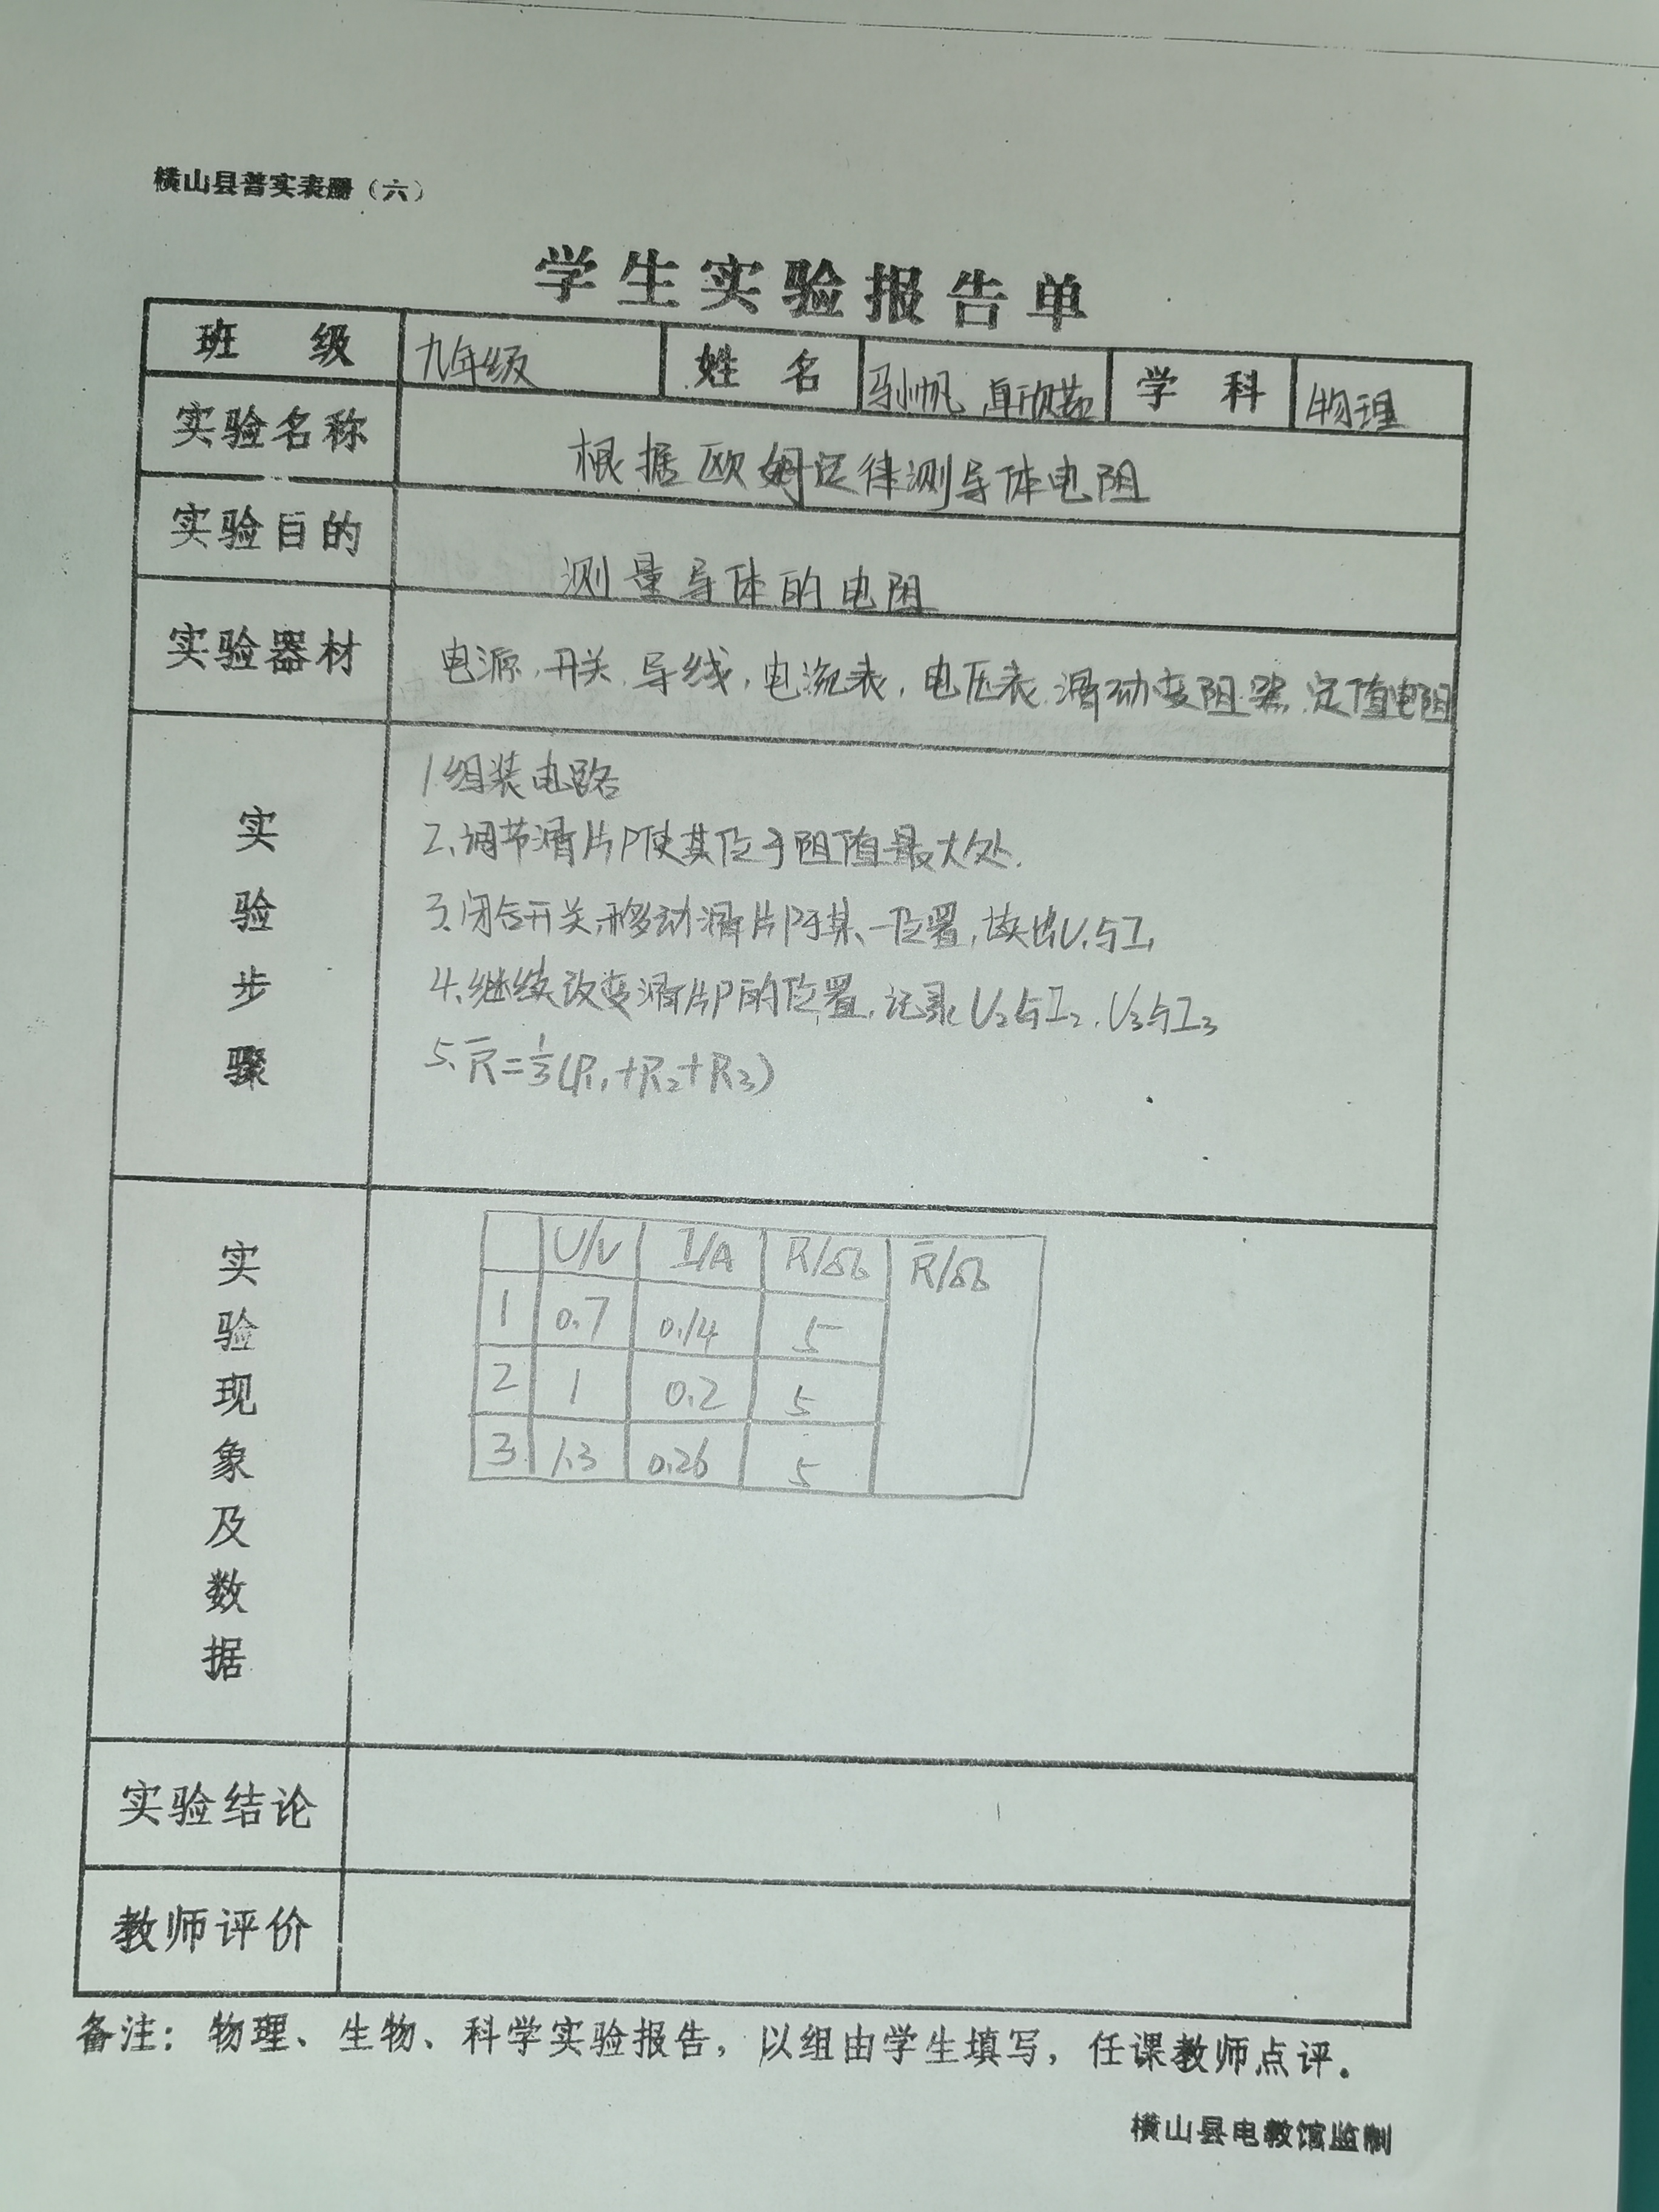 横山县普实表册（六）
学生实验报告单
班 级 九年级 姓 名 学 科 物理
实验名称 根据欧姆定律测导体电阻
实验目的 测量导体的电阻
实验器材 电源,开关.导线,电流表,电压表.滑动变阻器.定值电阻
实验步骤
1.组装电路
2.调节滑片P使其位于阻值最大处.
3.闭合开关,移动滑片P于某一位置,读出U₁与I₁
4.继续改变滑片P的位置,记录U₂与I₂.U₃与I₃
5.R̄=1/3(R₁+R₂+R₃)
实验现象及数据
U/V I/A R/Ω R̄/Ω
1 0.7 0.14 5
2 1 0.2 5
3 1.3 0.26 5
实验结论
教师评价
备注：物理、生物、科学实验报告，以组由学生填写，任课教师点评。
横山县电教馆监制